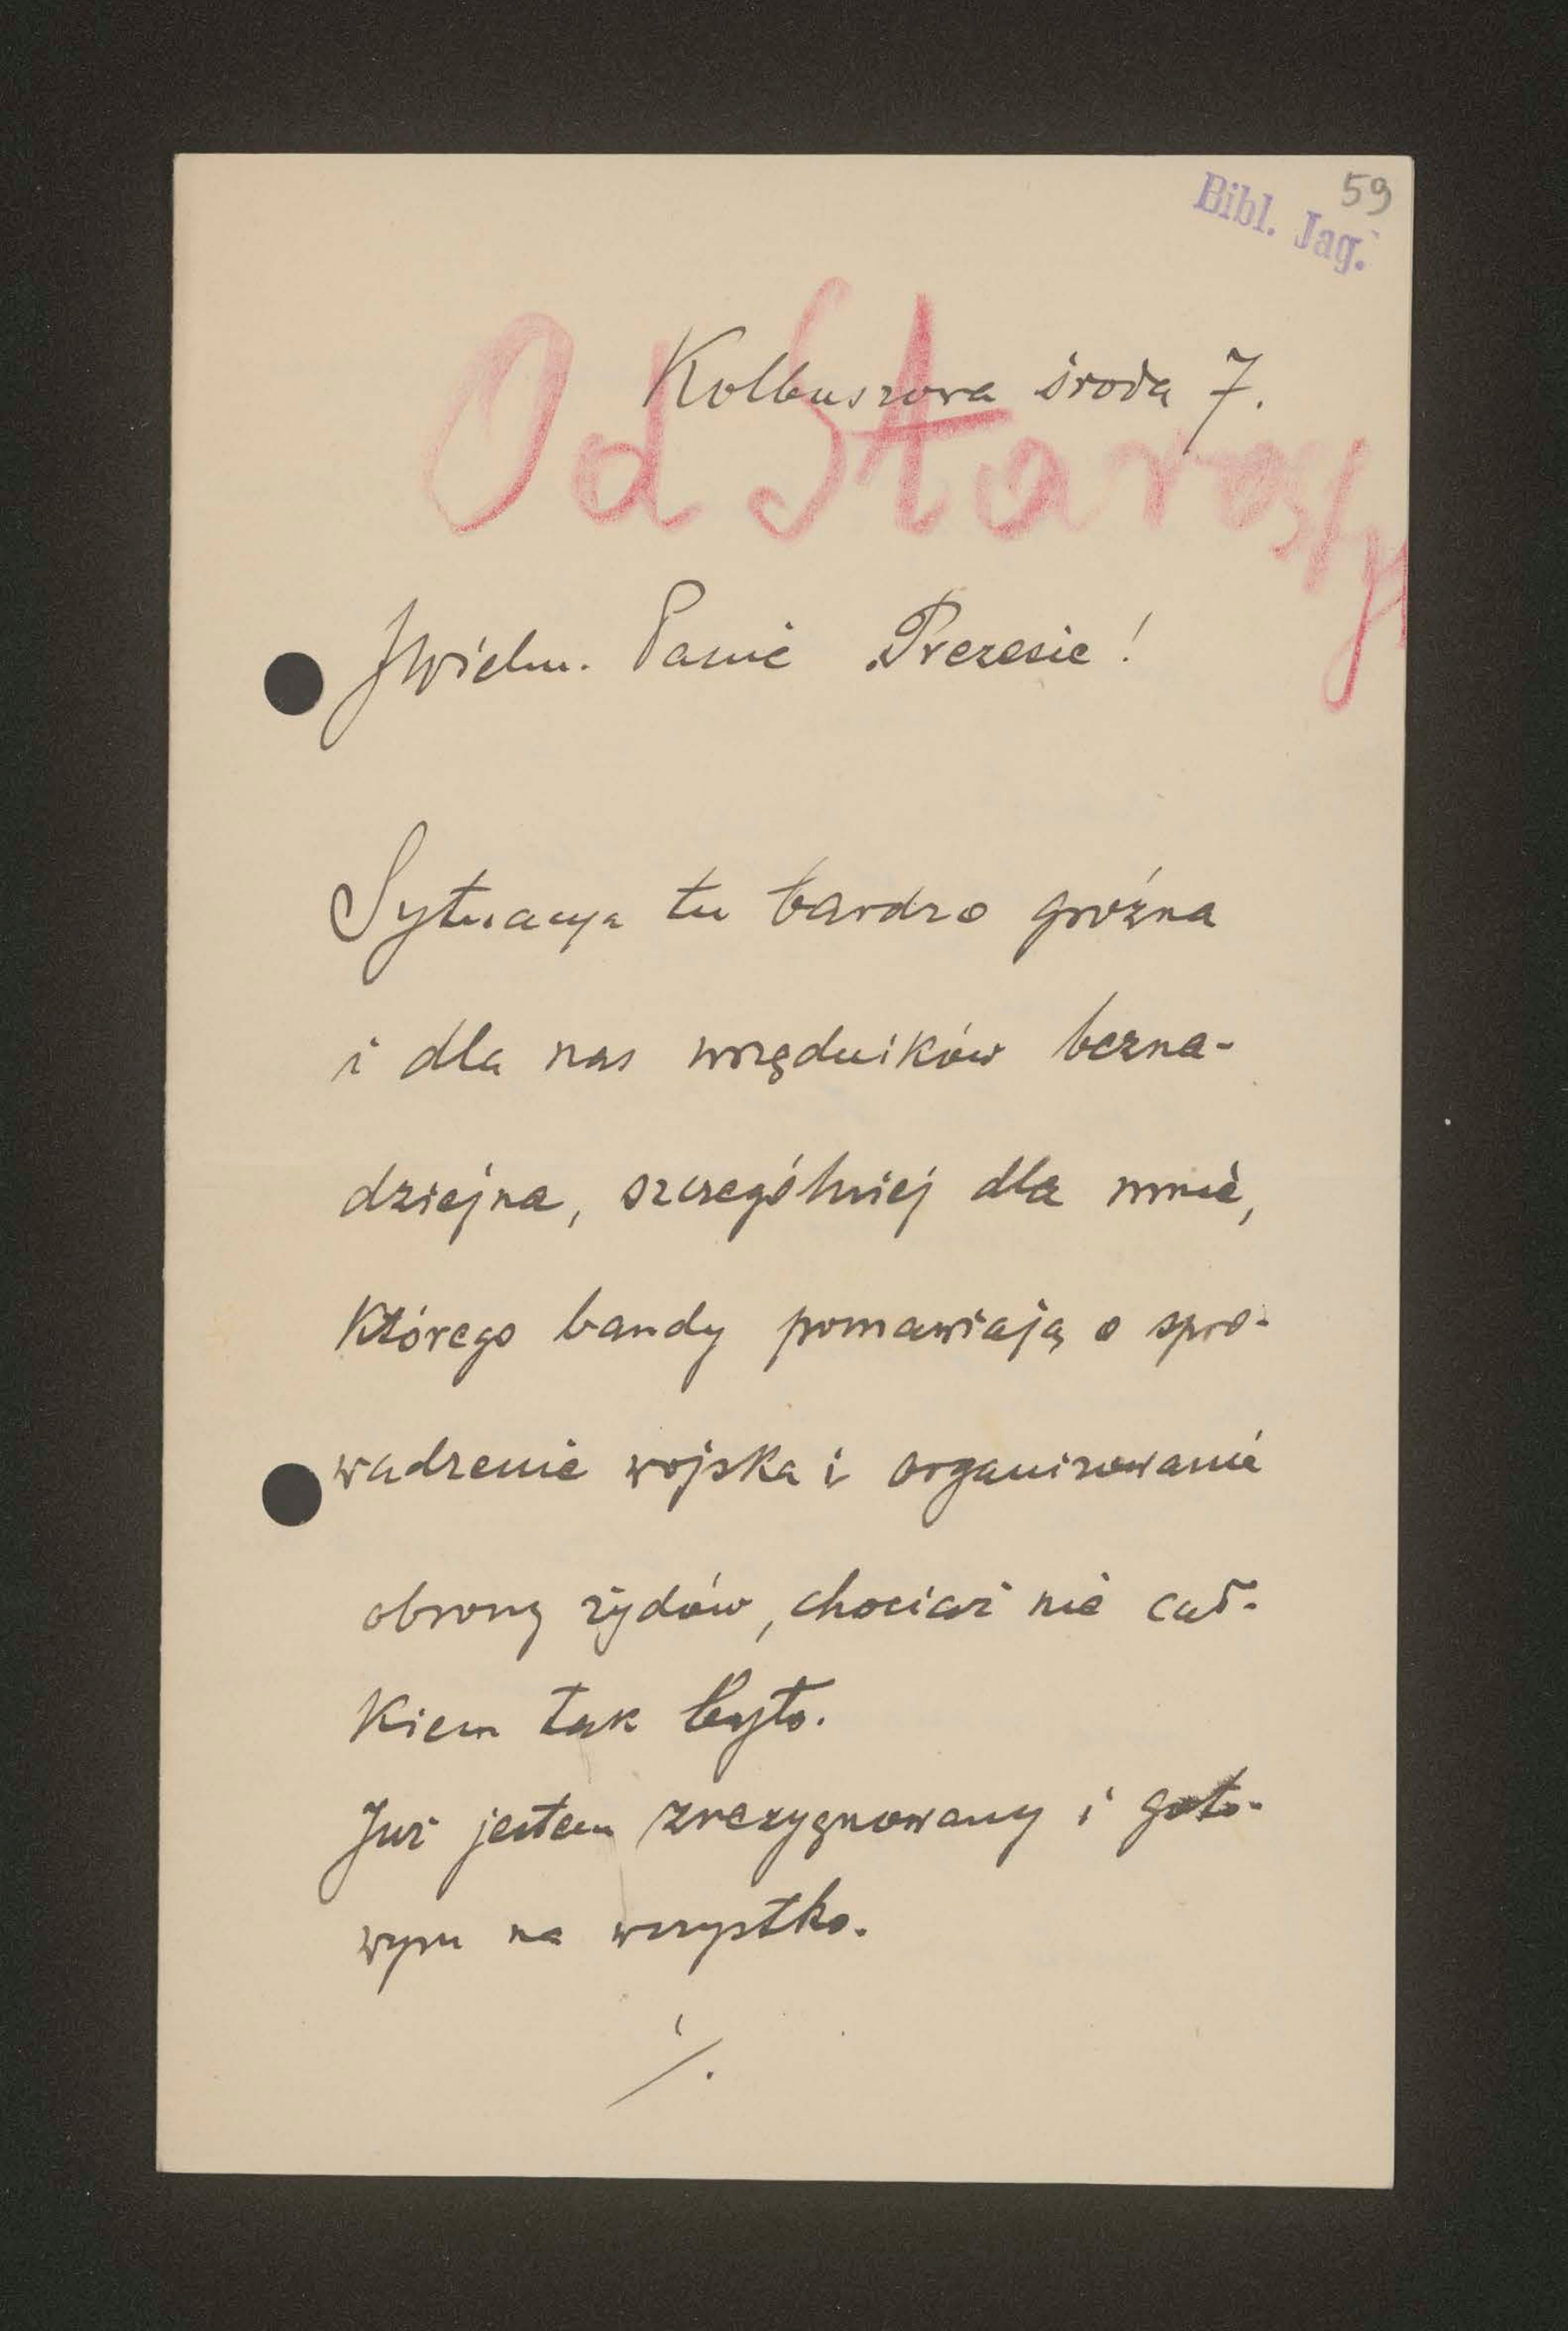 59
Bibl. Jag.
Kolbuszowa środa 7.
Od Starosty
JWielm. Panie Prezesie!
Sytuacya tu bardzo groźna
i dla nas urzędników bezna-
dziejna, szczególniej dla mnie,
którego bandy pomawiają o spro-
wadzenie wojska i organizowanie
obrony żydów, chociaż nie cał-
kiem tak było.
Już jestem zrezygnowany i goto-
wym na wszystko.
./.